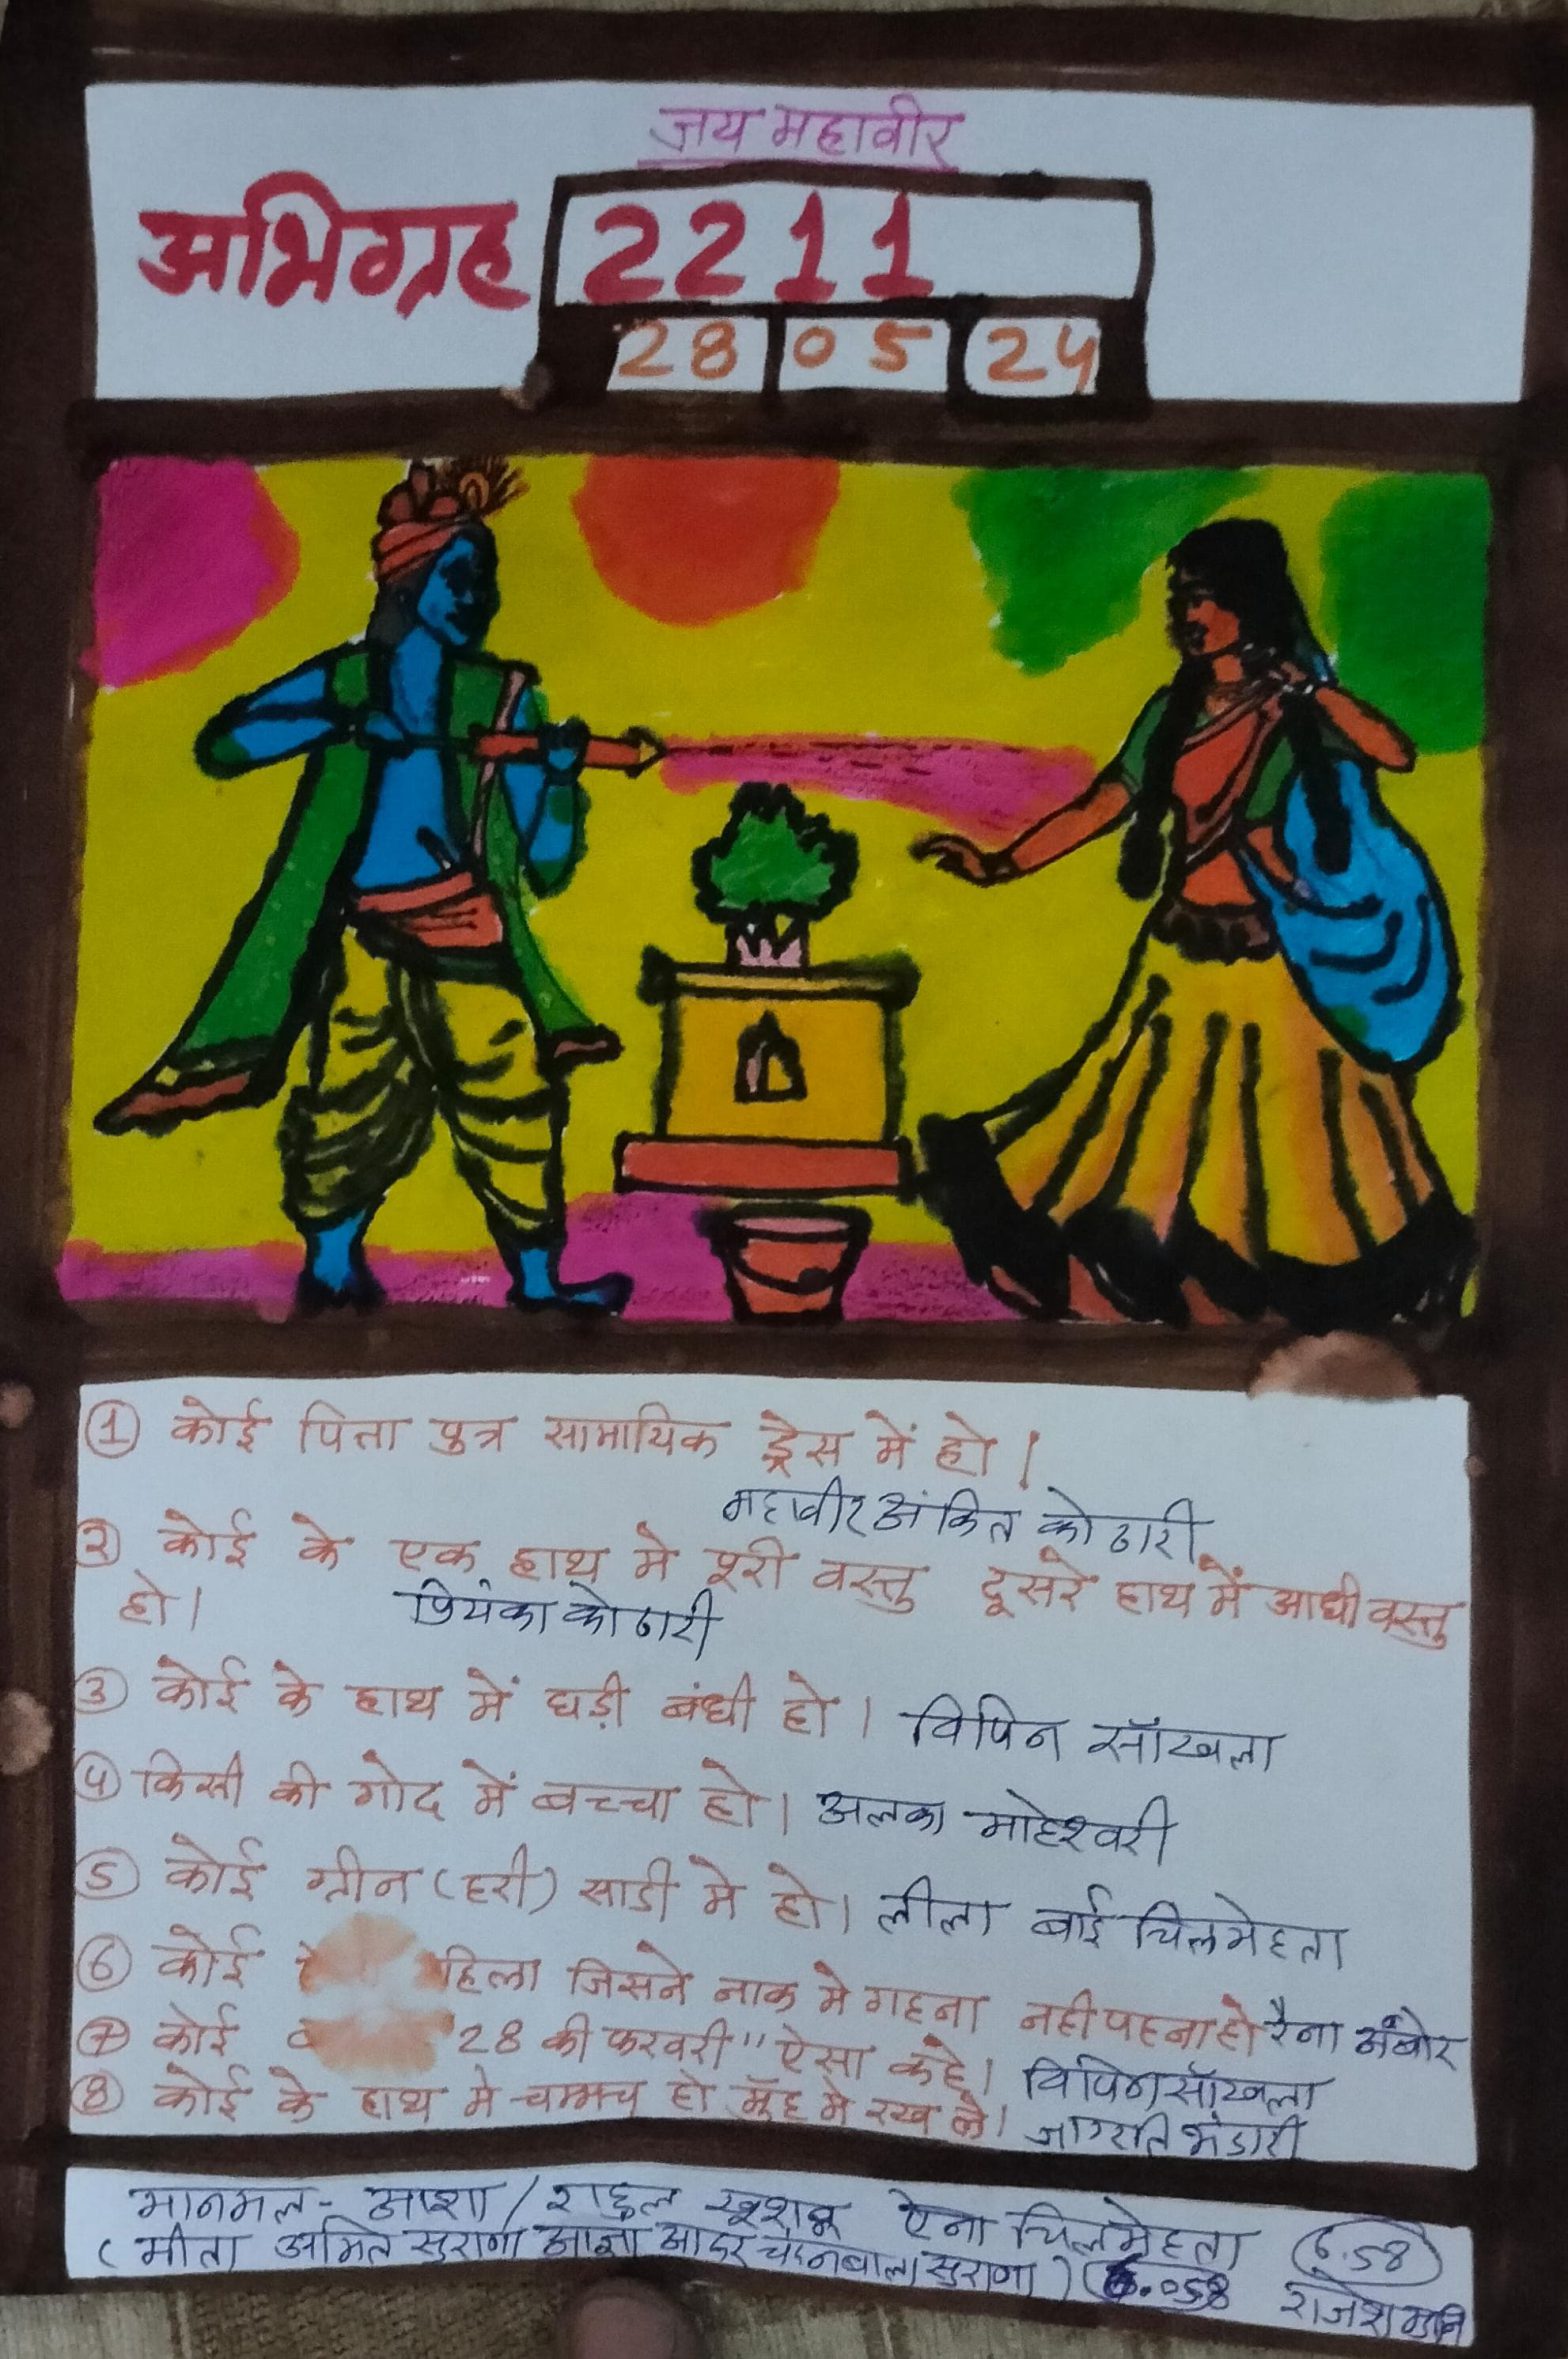 जय महावीर
अभिग्रह 2211
28 05 24
① कोई पिता पुत्र सामायिक ड्रेस में हो।
महावीर अंकित कोठारी
② कोई के एक हाथ मे पूरी वस्तु दूसरे हाथ में आधी वस्तु
हो। प्रियंका कोठारी
③ कोई के हाथ में घड़ी बंधी हो। विपिन सॉखला
④ किसी की गोद में बच्चा हो। अलका माहेश्वरी
⑤ कोई ग्रीन (हरी) साडी मे हो। लीला बाई चिलमेहता
⑥ कोई हिला जिसने नाक मे गहना नही पहना हो रैना
⑦ कोई 28 की फरवरी" ऐसा कहे। विपिन सॉखला
⑧ कोई के हाथ मे चम्मच हो मुँह मे रख ले। जागरति भंडारी
मानमल - आशा / राहुल खुशबू ऐना चिलमेहता 6.58
(मीता अमित सुराणा आज्ञा आदर चंदनबाला सुराणा) राजेश मुनि